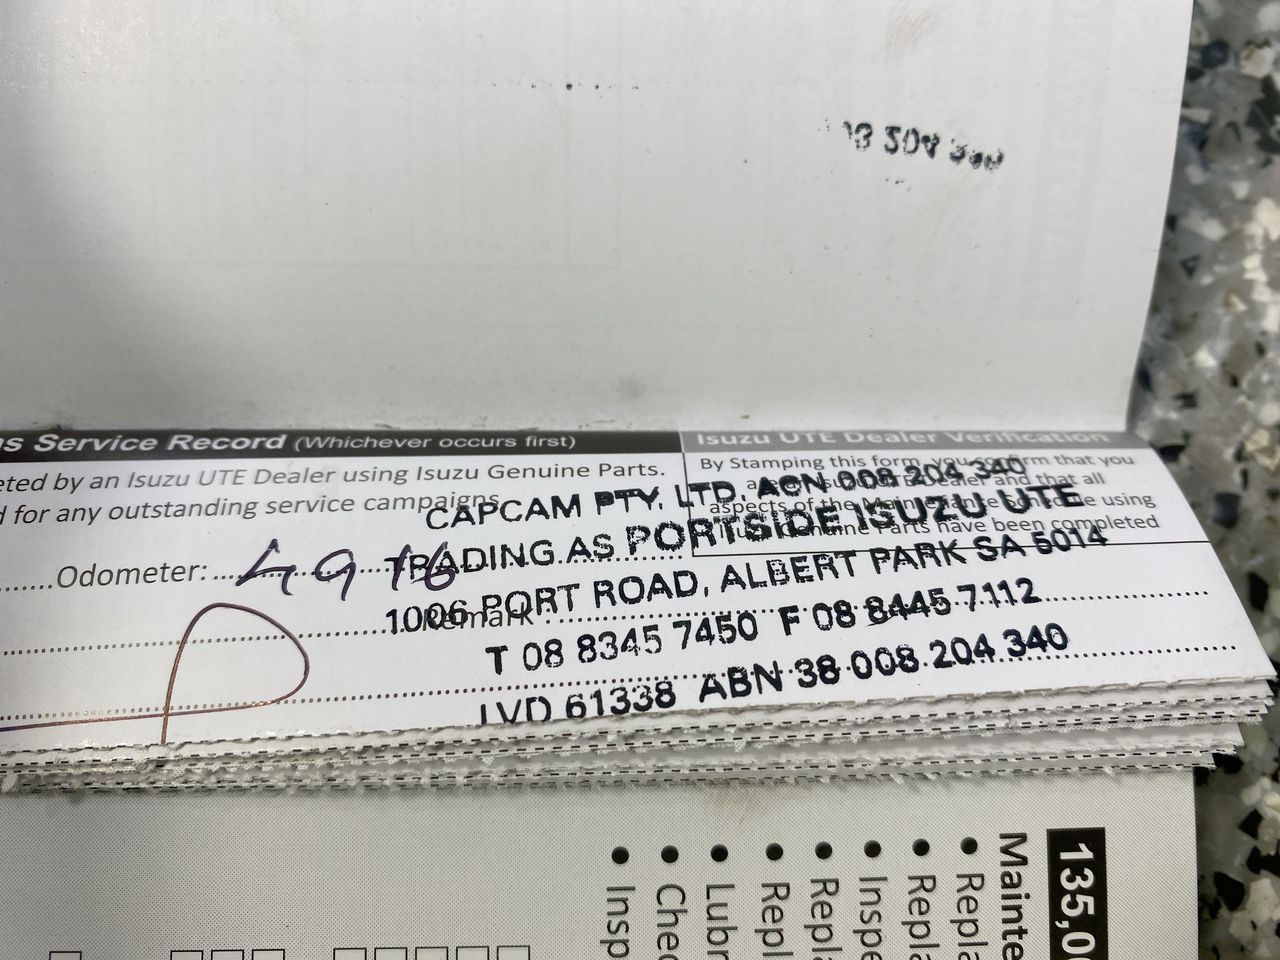 204
ns Service Record (Whichever occurs first)
Isuzu UTE Dealer Verification
eted by an Isuzu UTE Dealer using Isuzu Genuine Parts.
d for any outstanding service campaigns
By Stamping this form, you confirm that you
and that all
aspects of the using
Parts have been completed
Odometer: 4916
Remark
CAPCAM PTY. LTD. ACN 008 204 340
TRADING AS PORTSIDE ISUZU UTE
1006 PORT ROAD, ALBERT PARK SA 5014
T 08 8345 7450 F 08 8445 7112
LVD 61338 ABN 38 008 204 340
135,0
Mainte
• Repla
• Repla
• Inspe
• Repla
• Repl
• Lubr
• Che
• Insp